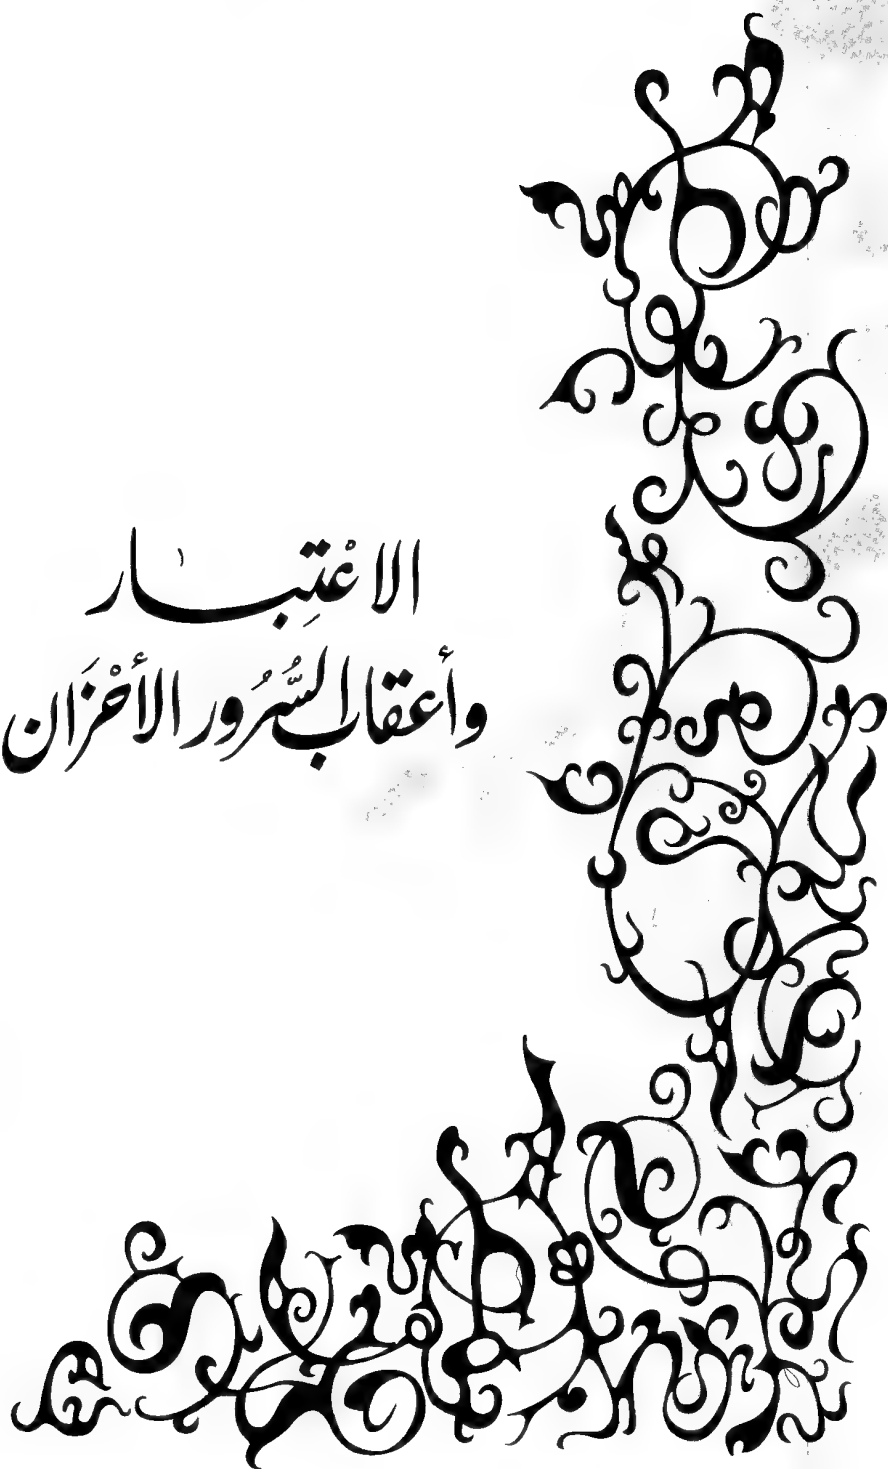 الاعْتِبار
وأعقاب السُّرُور الأحْزَان